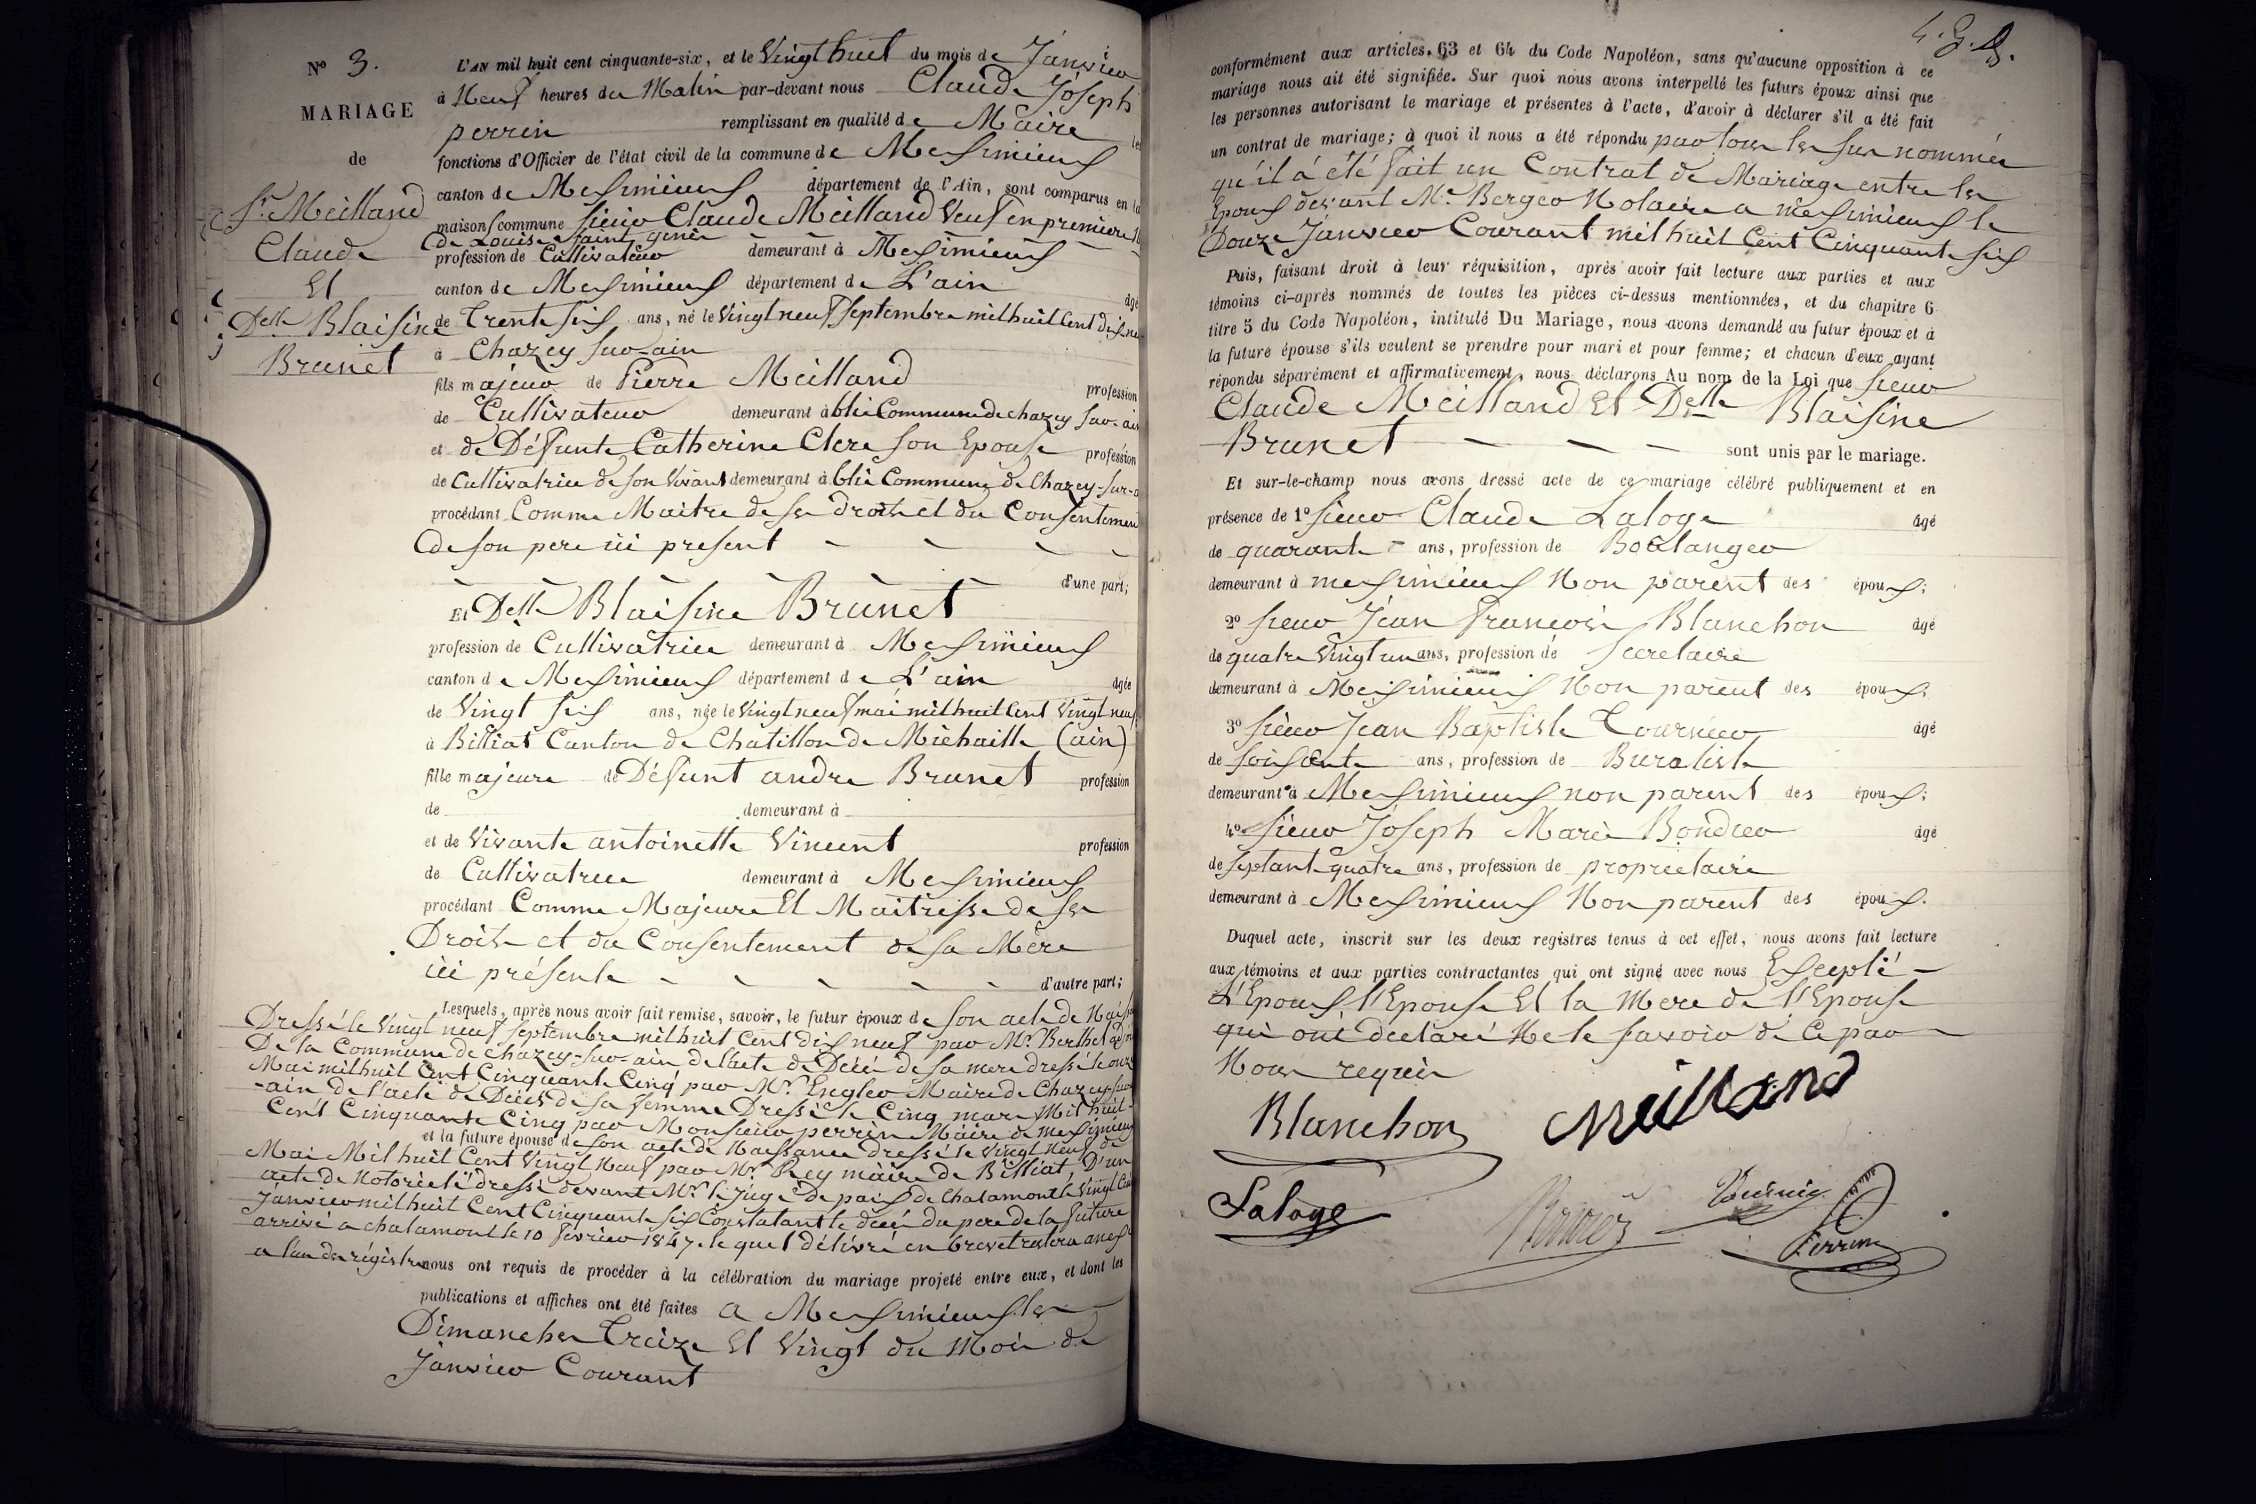 N° 3.
MARIAGE
de
Sr. Meilland
Claude
Et
Delle Blaisine
Brunet
L'AN mil huit cent cinquante-six, et le Vingt huit du mois de Janvier
à Neuf heures du Matin par-devant nous Claude Joseph
perrin remplissant en qualité de Maire les
fonctions d'Officier de l'état civil de la commune de Meximieux
canton de Meximieux département de l'Ain, sont comparus en la
maison commune sieur Claude Meilland Veuf en premiere
de Louise Saint genis
profession de Cultivateur demeurant à Meximieux
canton de Meximieux département de L'ain âgé
de Trente six ans, né le Vingt neuf septembre mil huit Cent dix neuf
à Chazey sur-ain
fils majeur de Pierre Meilland profession
de Cultivateur demeurant à blie Commune de chazey sur-ain
et de Défunte Catherine Clere son Epouse profession
de Cultivatrice de son Vivant demeurant à blie Commune de Chazey-sur-a
procédant Comme Maitre de ses droits et du Consentement
de son pere ici present
d'une part;
Et Delle Blaisine Brunet
profession de Cultivatrice demeurant à Meximieux
canton de Meximieux département de L'ain âgée
de Vingt six ans, née le Vingt neuf mai mil huit Cent Vingt neuf
à Billiat Canton de Chatillon de Michaille (ain)
fille majeure de Défunt andre Brunet profession
de demeurant à
et de Vivante antoinette Vincent profession
de Cultivatrice demeurant à Meximieux
procédant Comme Majeure Et Maitresse de ses
Droits et du Consentement de sa Mère
ici présente d'autre part;
Lesquels, après nous avoir fait remise, savoir, le futur époux de son acte de
Dressé le Vingt neuf septembre mil huit Cent dix neuf par Mr. Berthet
De la Commune de chazey-sur-ain de l'acte de Décé de sa mere dressé le onze
Mai mil huit Cent Cinquante Cinq par Mr. Maire de Chazey-sur
-ain de l'acte de Décès de sa femme Dressé le Cinq mars Mil huit-
Cent Cinquante Cinq par Monsieur perrin Maire de meximieux
et la future épouse de son acte de Naissance dressé le Vingt Neuf de
Mai Mil huit Cent Vingt Neuf par Mr. Rey maire de Billiat, D'un
acte de Notoriété dressé devant Mr. le Juge de paix de Chalamont le Vingt
Janvier mil huit Cent Cinquante six Constatant le décé du pere de la future
arrivé a chalamont le 10 février 1847. le quel délivré en brevet restera
a l'un des régistres nous ont requis de procéder à la célébration du mariage projeté entre eux, et dont les
publications et affiches ont été faites a Meximieux les
Dimanches Treize Et Vingt du Mois de
Janvier Courant
conformément aux articles 63 et 64 du Code Napoléon, sans qu'aucune opposition à ce
mariage nous ait été signifiée. Sur quoi nous avons interpellé les futurs époux ainsi que
les personnes autorisant le mariage et présentes à l'acte, d'avoir à déclarer s'il a été fait
un contrat de mariage; à quoi il nous a été répondu par tous les sus nommés
qu'il a été fait un Contrat de Mariage entre les
Epoux devant Me. Berger Notaire a meximieux le
Douze Janvier Courant mil huit Cent Cinquante six
Puis, faisant droit à leur réquisition, après avoir fait lecture aux parties et aux
témoins ci-après nommés de toutes les pièces ci-dessus mentionnées, et du chapitre 6
titre 5 du Code Napoléon, intitulé Du Mariage, nous avons demandé au futur époux et à
la future épouse s'ils veulent se prendre pour mari et pour femme; et chacun d'eux ayant
répondu séparément et affirmativement, nous déclarons Au nom de la Loi que sieur
Claude Meilland Et Delle Blaisine
Brunet sont unis par le mariage.
Et sur-le-champ nous avons dressé acte de ce mariage célébré publiquement et en
présence de 1° sieur Claude Laloge âgé
de quarante ans, profession de Boulanger
demeurant à meximieux Non parent des époux;
2° sieur Jean François Blanchon âgé
de quatre Vingt un ans, profession de Secretaire
demeurant à Meximieux Non parent des époux;
3° sieur Jean Baptiste Tournier âgé
de soixante ans, profession de Buraliste
demeurant à Meximieux non parent des époux;
4° sieur Joseph Marie Bondier âgé
de septant quatre ans, profession de proprietaire
demeurant à Meximieux Non parent des époux.
Duquel acte, inscrit sur les deux registres tenus à cet effet, nous avons fait lecture
aux témoins et aux parties contractantes qui ont signé avec nous Excepté
L'Epoux l'Epouse Et la Mere de l'Epouse
qui ont déclaré Ne le savoir de ce par
Nous requis
Blanchon Meilland
Laloge
Perrin